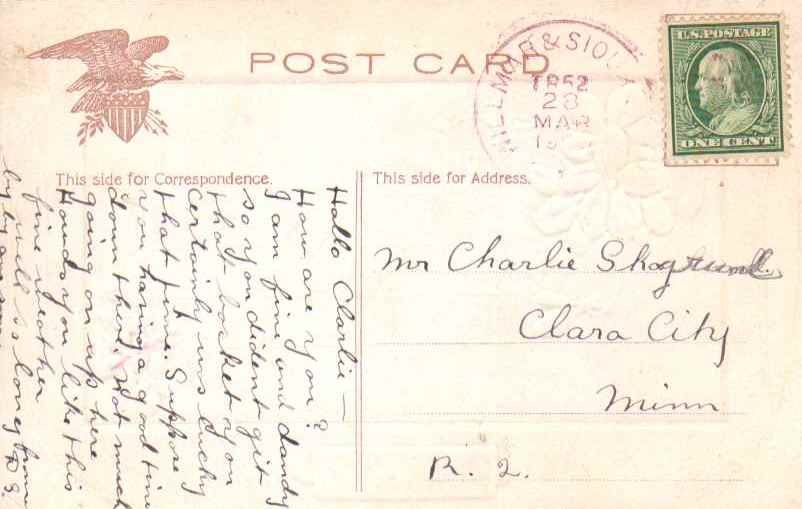 POST CARD
WILLMAR & SIOU
TR 52
28
MAR
U.S. POSTAGE
ONE CENT
This side for Correspondence.
This side for Address.
Hallo Clarlie —
How are you?
I am fine and dandy
so you dident git
that basket you
certainly was lucky
that time. Suppose
you having a good time
down there. Not much
going on up here
How do you like this
fine weather
well so long from
by by
R. S.
Mr Charlie Skoglund
Clara City
Minn
R. 2.